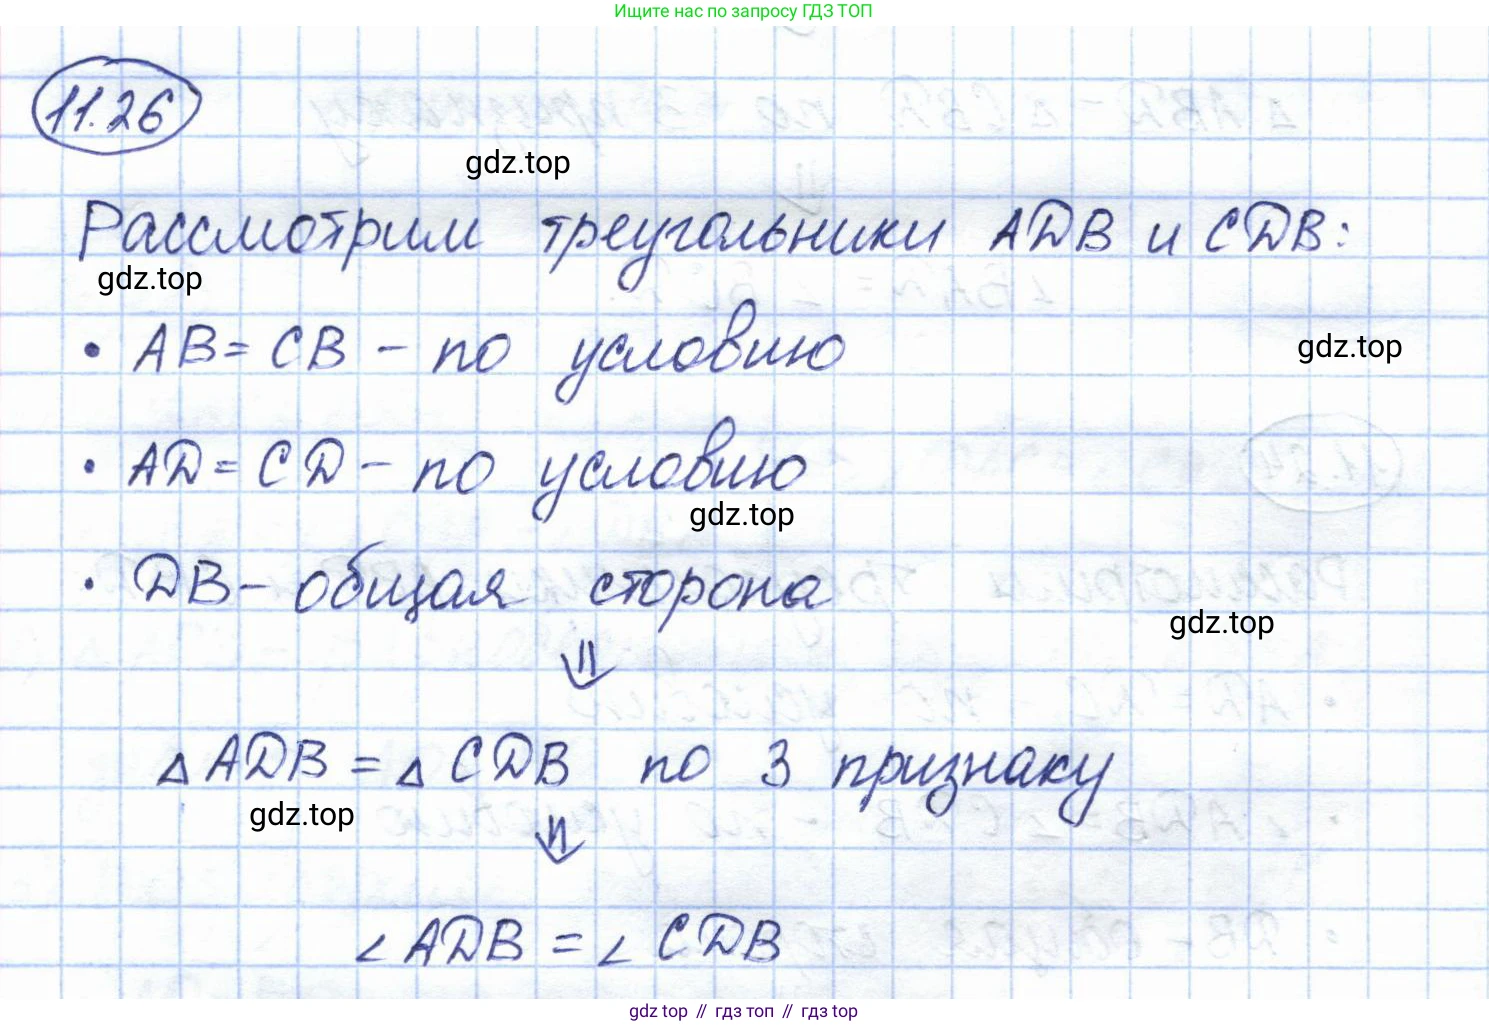 Ищите нас по запросу ГДЗ ТОП
11.26
gdz.top
Рассмотрим треугольники ADB и CDB:
gdz.top
• AB = CB – по условию
gdz.top
• AD = CD – по условию
gdz.top
• DB – общая сторона
gdz.top
⇓
△ ADB = △ CDB по 3 признаку
gdz.top
⇓
∠ ADB = ∠ CDB
gdz top // гдз топ // гдз top